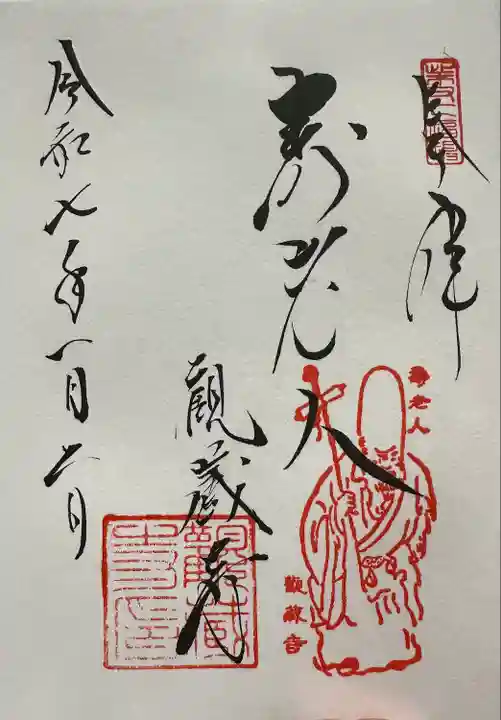 奉拝
寿老人
寿老人
観蔵寺
觀蔵寺
令和七年一月六日